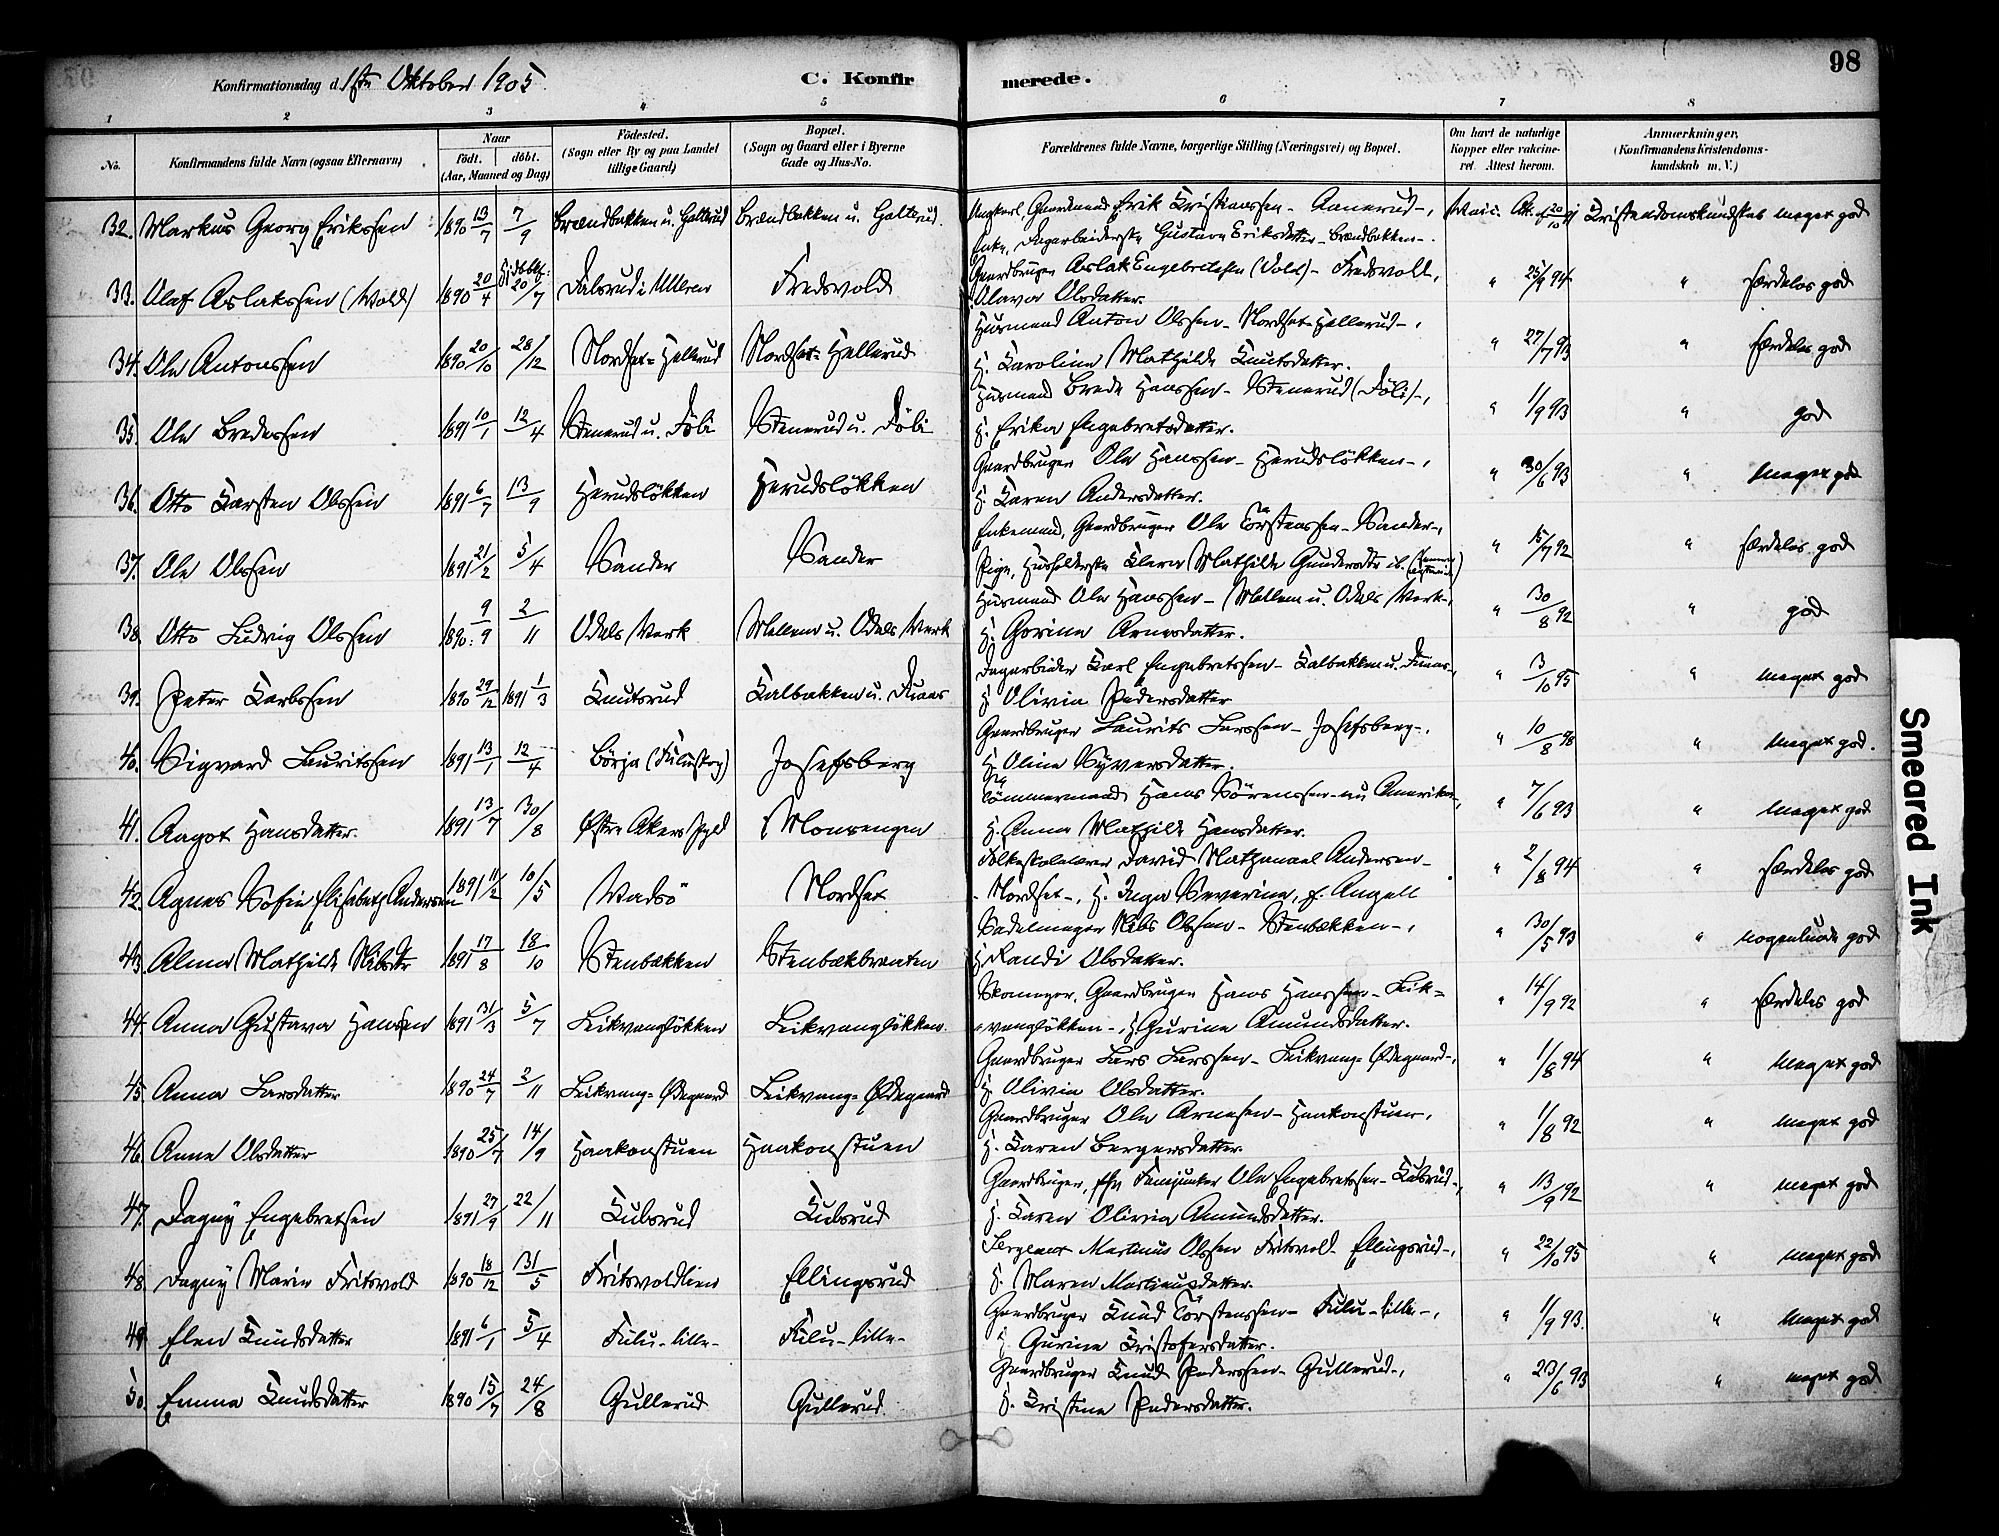 98
Konfirmationsdag d. 1ste Oktober 1905
C. Konfirmerede.
1 2 3 4 5 6 7 8
No. Konfirmandens fulde Navn (ogsaa Efternavn) Naar født. døbt. (Aar, Maaned og Dag) Fødested. (Sogn eller By og paa Landet tillige Gaard) Bopæl. (Sogn og Gaard eller i Byerne Gade og Hus-No. Forældrenes fulde Navne, borgerlige Stilling (Næringsvei) og Bopæl. Om havt de naturlige Kopper eller vakcineret. Attest herom. Anmærkninger. (Konfirmandens Kristendomskundskab m. V.)
32. Markus Georg Erikssen 1890 13/7 7/9 Brændbakken u. Galterud Brændbakken u. Galterud. Ungkarl Gaardmand Erik Kristianssen - Aanerud -,
Enke, Dagarbeiderske Gustava Eriksdatter - Brændbakken -. Kristendomskundskab meget god
33. Olaf Aslakssen (Wold) 1890 20/4 20/7 Dalsrud i Ullern Fredsvold Gaardbruger Aslak Engebretssen (Vold) - Fredsvold,
Olava Olsdatter. " 25/9 94 " særdeles god
34. Ole Antonssen 1890 20/10 28/12 Nordset-Hellerud Nordset-Hellerud Husmand Anton Olssen - Nordset-Hellerud -,
H. Karoline Mathilde Knutsdatter. " 27/7 93 " særdeles god
35. Ole Bredessen 1891 10/1 12/4 Stenerud u. Döli Stenerud u. Döli Husmand Brede Hanssen - Stenerud (Döli) -,
H. Erika Engebretsdatter. " 1/9 93 " god
36. Otto Karsten Olssen 1891 6/7 13/9 Herudsløkken Herudsløkken Gaardbruger Ole Hanssen - Herudsløkken -,
H. Karen Andersdatter. " 30/6 93 " meget god
37. Ole Olssen 1891 21/2 5/4 Sander Sander Enkemand, Gaardbruger Ole Torstenssen - Sander -,
Pige, Husholderske Klara Mathilde Gundersdtr ib. " 15/7 92 " særdeles god
38. Otto Ludvig Olssen 1890. 9/9 2/11 Odals Værk Mellem u. Odals Værk Husmand Ole Hanssen - Mellem u. Odals Værk -,
H. Gorine Arnesdatter. " 30/8 92 " god
39. Peter Karlssen 1890 29/12 1891 1/3 Knutsrud Kalbakken u. Disnes Dagarbeider Karl Engebretssen - Kalbakken u. Disnes -,
H. Olivia Pedersdatter " 3/10 95 " meget god
40. Sigvard Lauritssen 1891 13/1 12/4 Börja Josefsberg Gaardbruger Laurits Larssen - Josefsberg -,
H. Oline Syversdatter. " 10/8 98 " meget god.
41. Aagot Hansdatter. 1891 13/7 30/8 Østre Akers Pgld Monsengen Tömmermand Hans Sörenssen - nu Amerika -,
H. Anna Mathilde Hansdatter. " 7/6 93 " meget god
42. Agnes Sofie Elisabeth Andersen 1891 11/2 10/5 Vadsö Nordset Folkeskolelærer David Nathanael Andersen -
- Nordset -, H. Inga Severine, f. Angell " 2/8 94 " særdeles god
43. Alma Mathilde Nilsdtr 1891 17/8 18/10 Stenbækken Stenbækbraaten Sadelmager Nils Olssen - Stenbækken -,
H. Randi Olsdatter. " 30/5 93 " nogenlunde god
44. Anna Gustava Hansen 1891 31/3 5/7 Leikvangløkken Leikvangløkken Skomager, Gaardbruger Hans Hanssen - Leik=
=vangløkken -, H. Gurine Amundsdatter. " 14/9 92 " særdeles god
45. Anna Larsdatter 1890 24/7 2/11 Leikvang-Ødegaard Leikvang-Ødegaard Gaardbruger Lars Larssen - Leikvang-Ødegaard -,
H. Olivia Olsdatter. " 1/8 94 " meget god
46. Anne Olsdatter 1890 25/7 14/9 Haakonstuen Haakonstuen Gaardbruger Ole Arnesen - Haakonstuen,
H. Karen Bergersdatter. " 1/8 92 " meget god
47. Dagny Engebretsen 1891 27/9 22/11 Kulsrud Kulsrud Gaardbruger, Fanejunker Ole Engebretssen - Kulsrud -,
H. Karen Olivia Amundsdatter. " 13/9 92 " meget god
48. Dagny Marie Fritsvold 1890 18/12 31/5 Fritsvoldlien Ellingsrud Sergeant Martinus Olssen Fritsvold - Ellingsrud -,
H. Maren Martinusdatter. " 22/10 95 " meget god
49. Elen Knudsdatter 1891 6/1 5/4 Fulu-lille- Fulu-lille- Gaardbruger Knud Torstenssen - Fulu-lille -,
H. Gurine Kristofersdatter. " 1/9 93. " meget god
50. Emma Knudsdatter 1890 15/7 24/8 Gullerud Gullerud Gaardbruger Knud Pederssen - Gullerud -,
H. Kristine Pedersdatter. " 23/6 93 " meget god
Smeared Ink